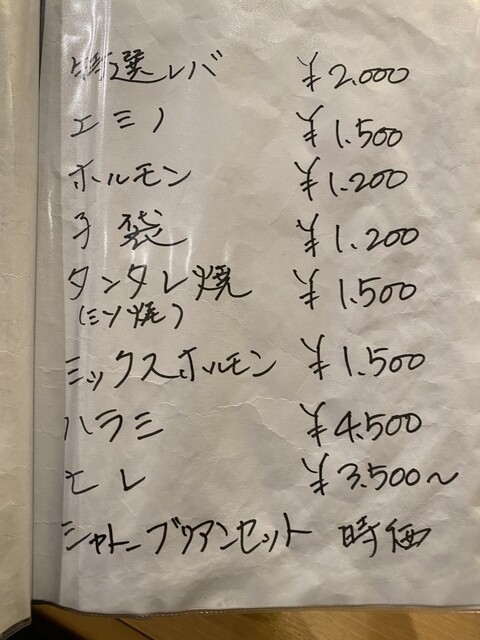 特選レバ ¥2.000
エミノ ¥1.500
ホルモン ¥1.200
子袋 ¥1.200
タンタレ焼 ¥1.500
(ミソ焼)
ミックスホルモン ¥1.500
ハラミ ¥4.500
ヒレ ¥3.500〜
シャトーブリアンセット 時価